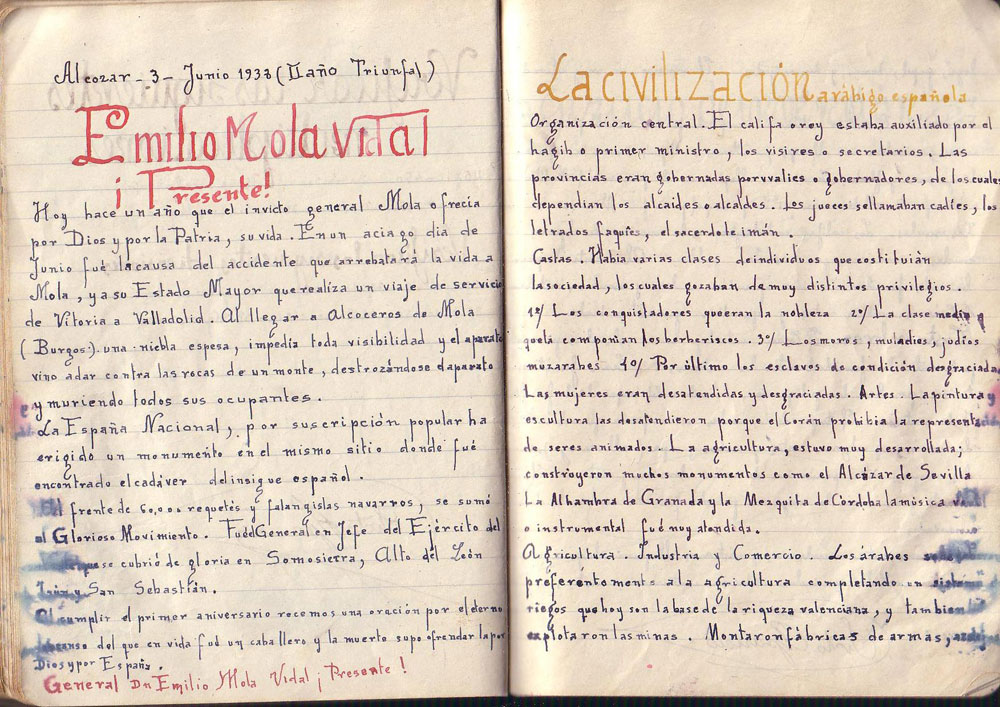 Alcozar - 3 - Junio 1938 (II año Triunfal)
Emilio Mola Vidal
¡ Presente!
Hoy hace un año que el invicto general Mola ofrecia
por Dios y por la Patria, su vida. En un aciago dia de
Junio fué la causa del accidente que arrebatará la vida a
Mola, y a su Estado Mayor que realiza un viaje de servicio
de Vitoria a Valladolid. Al llegar a Alcoceros de Mola
(Burgos:). una niebla espesa, impedía toda visibilidad y el aparato
vino a dar contra las rocas de un monte, destrozándose el aparato
y muriendo todos sus ocupantes.
La España Nacional, por suscripción popular ha
erigido un monumento en el mismo sitio donde fué
encontrado el cadáver del insigne español.
Al frente de 60,000 requetés y falangislas navarros, se sumó
al Glorioso Movimiento. Fué General en Jefe del Ejército del
que se cubrió de gloria en Somosierra, Alto del León
Irún y San Sebastián.
Al cumplir el primer aniversario recemos una oración por el eterno
descanso del que en vida fué un caballero y la muerte supo ofrendar la por
Dios y por España.
General Dn Emilio Mola Vidal ¡ Presente !
La civilización arábigo española
Organización central. El califa o rey estaba auxiliado por el
hagib o primer ministro, los visires o secretarios. Las
provincias eran gobernadas por valies o gobernadores, de los cuales
dependian los alcaides o alcaldes. Los jueces se llamaban cadíes, los
letrados faquíes, el sacerdote imán.
Castas. Había varias clases de individuos que costituián
la sociedad, los cuales gozaban de muy distintos privilegios.
1º/ Los conquistadores que eran la nobleza 2º/ La clase media
que la componían los berberiscos. 3º/ Los moros, muladies, judíos
muzarabes 4º/ Por último los esclavos de condición desgraciada
Las mujeres eran desatendidas y desgraciadas. Artes. La pintura y
escultura las desatendieron porque el Corán prohibia la representa
de seres animados. La agricultura, estuvo muy desarrollada;
construyeron muchos monumentos como el Alcázar de Sevilla
La Alhambra de Granada y la Mezquita de Córdoba la música
o instrumental fué muy atendida.
Agricultura. Industria y Comercio. Los árabes
preferentemente a la agricultura completando un sistema
riegos que hoy son la base de la riqueza valenciana, y tambien
explotaron las minas. Montaron fábricas de armas,